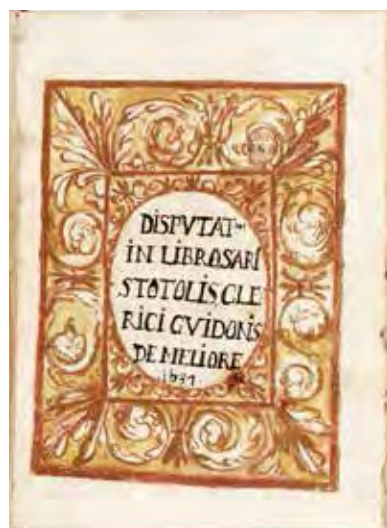 DISPVTAT
IN LIBROS ARI
STOTOLIS CLE
RICI GVIDONIS
DE MELIORE